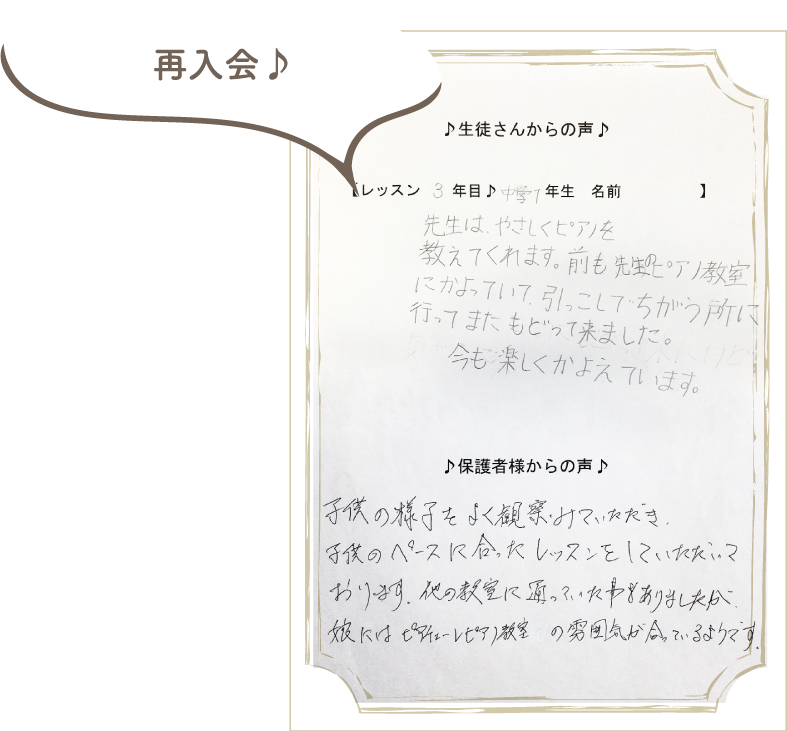 再入会♪
♪生徒さんからの声♪
【レッスン 3 年目♪中学1年生 名前 】
先生は、やさしくピアノを
教えてくれます。前も先生のピアノ教室
にかよっていて、引っこしでちがう所に
行ってまたもどって来ました。
今も楽しくかよえています。
♪保護者様からの声♪
子供の様子をよく観察みていただき、
子供のペースに合ったレッスンをしていただいて
おります。他の教室に通っていた事もありましたが、
娘には ピアチェーレピアノ教室 の雰囲気が合っているようです。